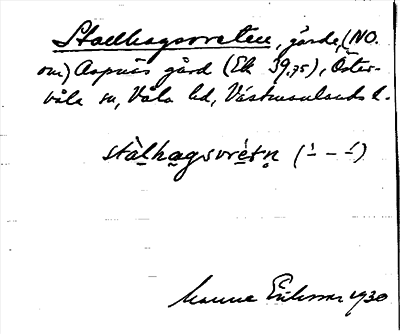 Stadhagsvreten, gärde, (NO.
om) Aspnäs gård (Ek 39,75), Öster-
våla sn, Våla hd, Västmanlands l.
stàlhagsvrètn̥ (ˈ – ˈ)
Manne Eriksson 1930